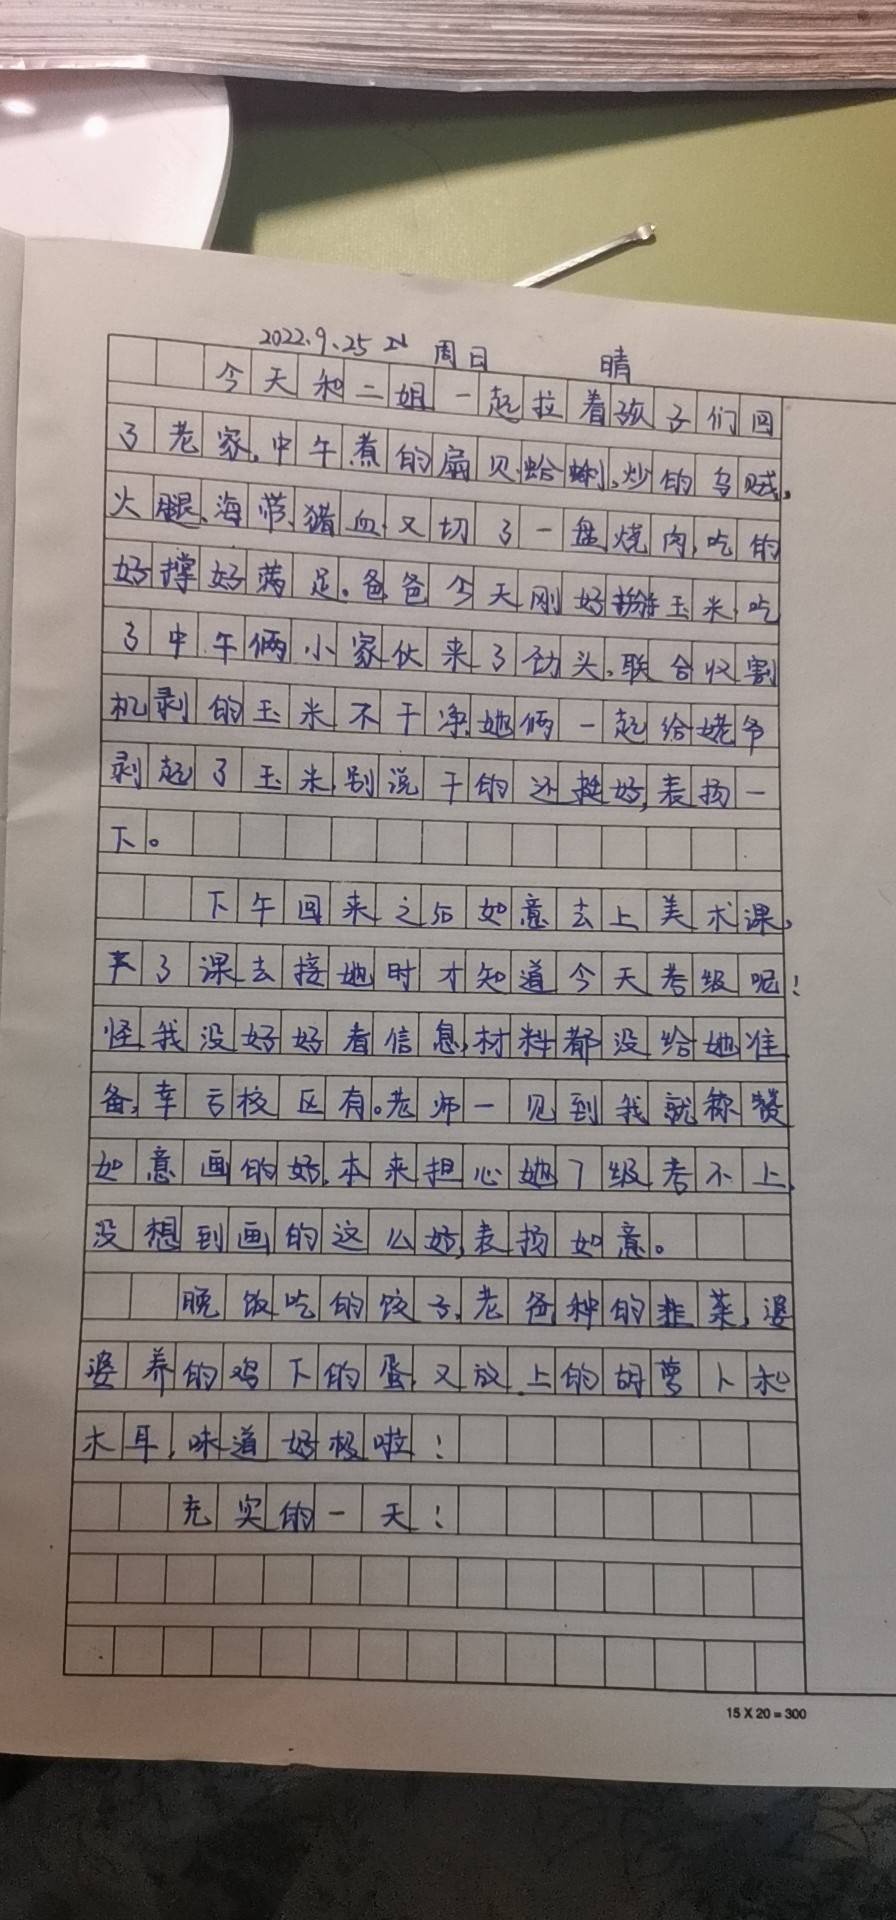 2022.9.25 周日 晴
今天和二姐一起拉着孩子们回
了老家,中午煮的扇贝、蛤蜊、炒的乌贼,
火腿、海带、猪血,又切了一盘烧肉,吃的
好撑好满足。爸爸今天刚好掰玉米,吃
了中午俩小家伙来了劲头,联合收割
机剥的玉米不干净,她俩一起给姥爷
剥起了玉米,别说干的还挺好,表扬一
下。
下午回来之后如意去上美术课,
下了课去接她时才知道今天考级呢!
怪我没好好看信息,材料都没给她准
备,幸亏校区有。老师一见到我就称赞
如意画的好,本来担心她7级考不上,
没想到画的这么好,表扬如意。
晚饭吃的饺子,老爸种的韭菜,婆
婆养的鸡下的蛋,又放上的胡萝卜和
木耳,味道好极啦!
充实的一天!
15 X 20 = 300